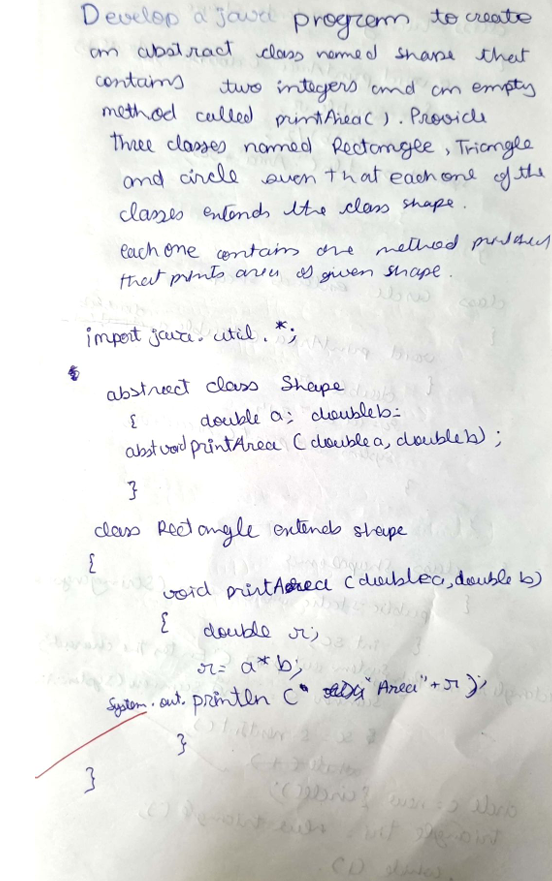 Develop a java program to create
an abstract class named shape that
contains two integers and an empty
method called printArea(). Provide
three classes named Rectangle, Triangle
and circle such that each one of the
classes extends the class shape.
each one contains one method printArea
that prints area of given shape.
import java. util. *;
abstract class Shape
{ double a; double b;
abst void printArea (double a, double b);
}
class Rectangle extends shape
{
void printArea (double a, double b)
{ double r;
r = a*b;
System.out.println ("Area"+r);
}
}